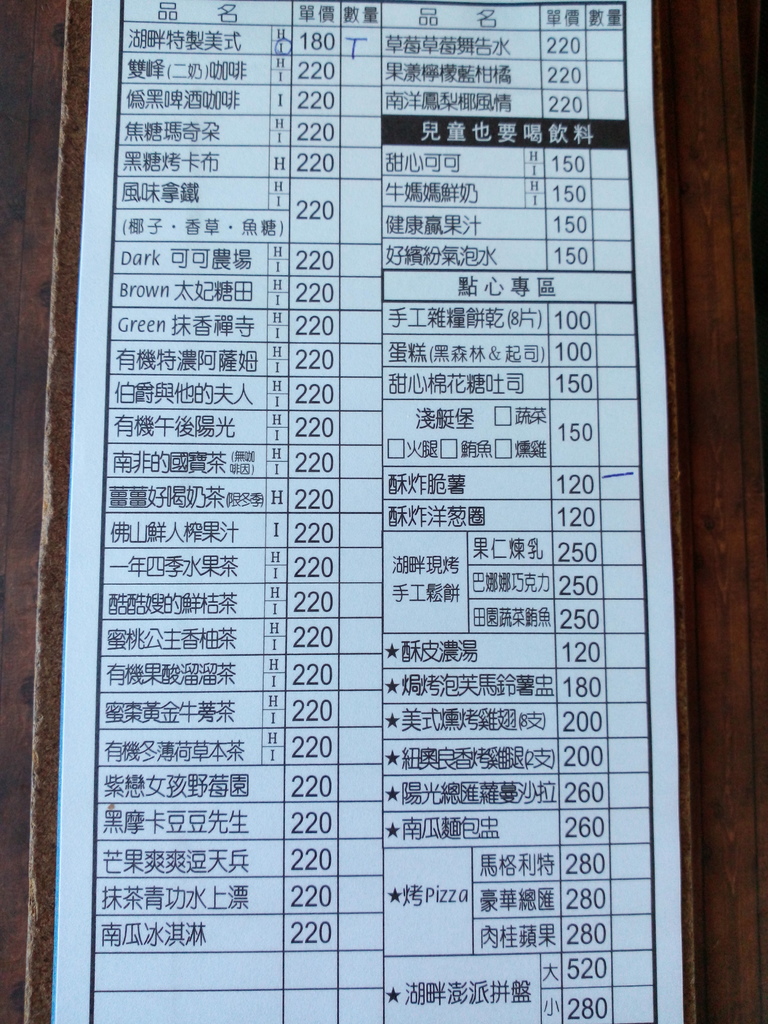 品名 單價 數量
湖畔特製美式 H I 180 T
雙峰(二奶)咖啡 H I 220
偽黑啤酒咖啡 I 220
焦糖瑪奇朵 H I 220
黑糖烤卡布 H 220
風味拿鐵 H I 220
(椰子·香草·魚糖)
Dark 可可農場 H I 220
Brown 太妃糖田 H I 220
Green 抹香禪寺 H I 220
有機特濃阿薩姆 H I 220
伯爵與他的夫人 H I 220
有機午後陽光 H I 220
南非的國寶茶(無咖啡因) H I 220
薑薑好喝奶茶(限冬季) H 220
佛山鮮人榨果汁 I 220
一年四季水果茶 H I 220
酷酷嫂的鮮桔茶 H I 220
蜜桃公主香柚茶 H I 220
有機果酸溜溜茶 H I 220
蜜棗黃金牛蒡茶 H I 220
有機冬薄荷草本茶 H I 220
紫戀女孩野莓園 220
黑摩卡豆豆先生 220
芒果爽爽逗天兵 220
抹茶青功水上漂 220
南瓜冰淇淋 220
品名 單價 數量
草莓草莓舞告水 220
果漾檸檬藍柑橘 220
南洋鳳梨椰風情 220
兒童也要喝飲料
甜心可可 H I 150
牛媽媽鮮奶 H I 150
健康贏果汁 150
好繽紛氣泡水 150
點心專區
手工雜糧餅乾(8片) 100
蛋糕(黑森林&起司) 100
甜心棉花糖吐司 150
淺艇堡 □蔬菜 150
□火腿□鮪魚□燻雞
酥炸脆薯 120 一
酥炸洋蔥圈 120
湖畔現烤
手工鬆餅
果仁煉乳 250
巴娜娜巧克力 250
田園蔬菜鮪魚 250
★酥皮濃湯 120
★焗烤泡芙馬鈴薯盅 180
★美式燻烤雞翅(8支) 200
★紐奧良香烤雞腿(2支) 200
★陽光總匯蘿蔓沙拉 260
★南瓜麵包盅 260
★烤Pizza
馬格利特 280
豪華總匯 280
肉桂蘋果 280
★湖畔澎派拼盤
大 520
小 280